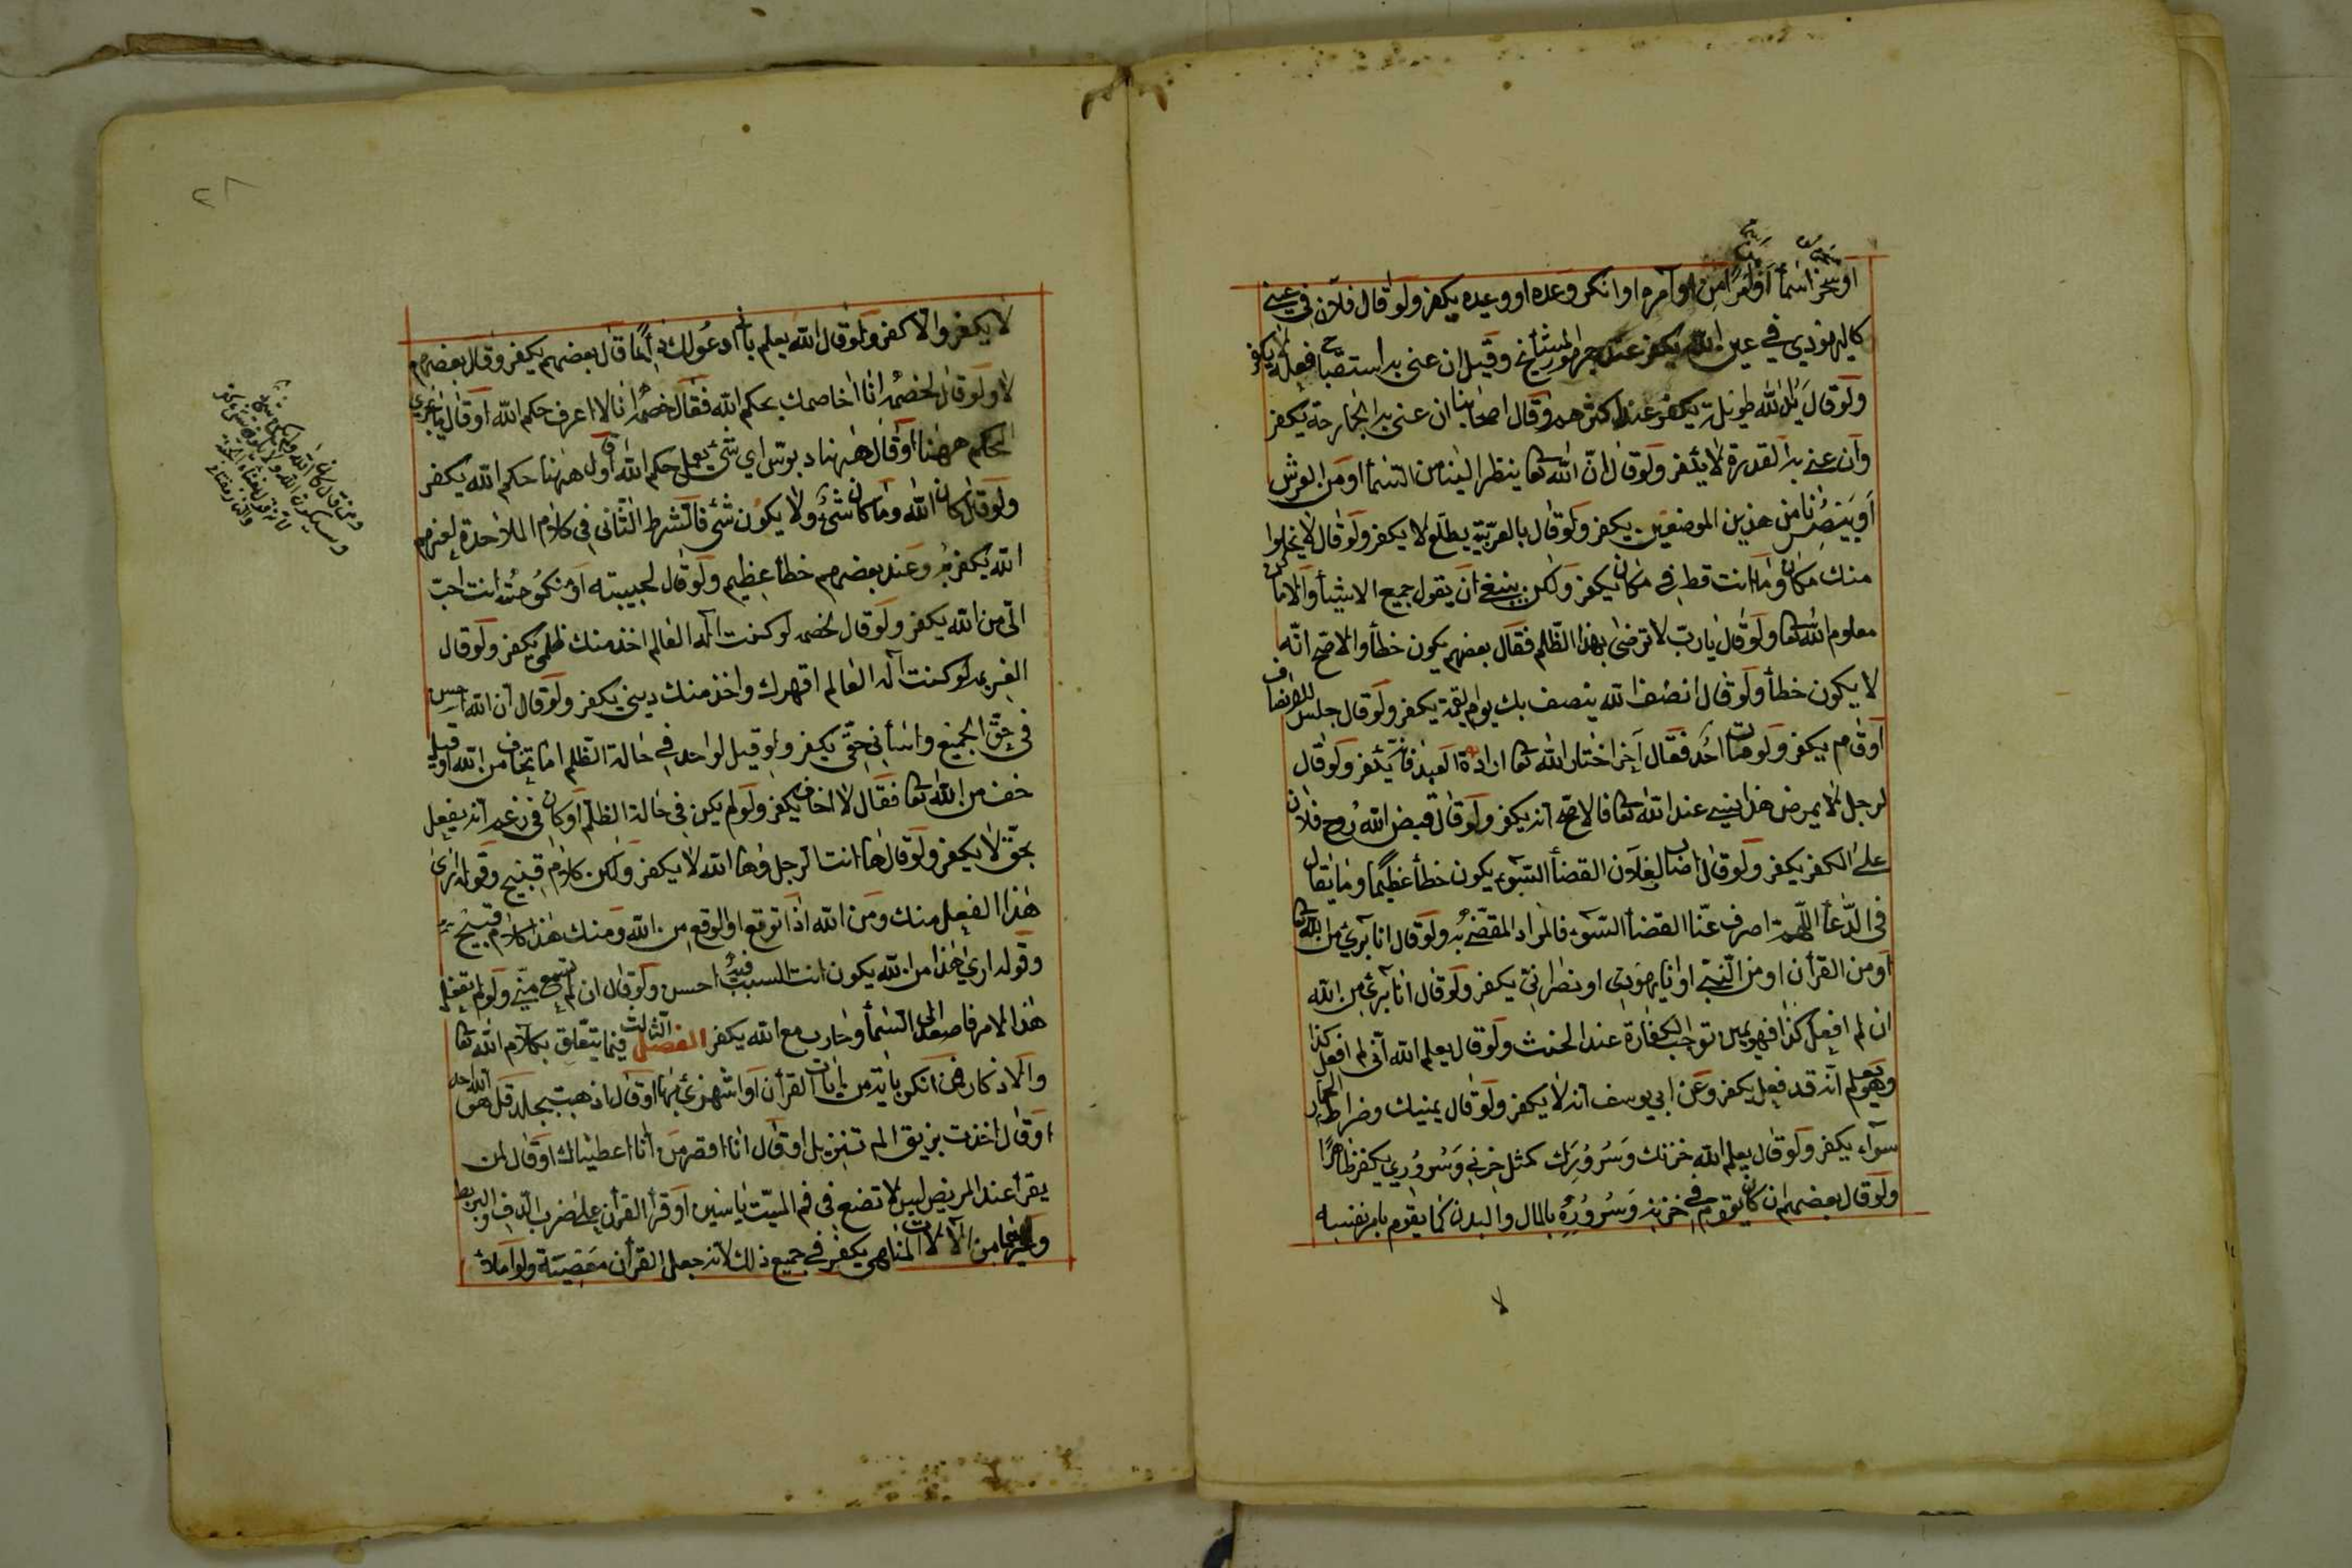 او سخر اسما او امرا من اوامره او انكر وعده او وعيده يكفر ولو قال فلان في عيني
كاليهودي في عين الله يكفر عند جمهور المشايخ وقيل ان عنى به استقباح فعله لا يكفر
ولو قال يد الله طويلة يكفر عند اكثرهم وقال اصحابنا ان عنى به الجارحة يكفر
وان عنى به القدرة لا يكفر ولو قال ان الله تعا ينظر الينا من السما او من العرش
او يبصرنا من هذين الموضعين يكفر ولو قال بالعربية يطلع لا يكفر ولو قال لا يخلوا
منك مكان وما انت قط في مكان يكفر ولكن ينبغي ان يقول جميع الاشيأ والاماكن
معلوم الله تعا ولو قال يا رب لا ترضى بهذا الظلم فقال بعضهم يكون خطأ والاصح انه
لا يكون خطأ ولو قال انصف الله ينصف بك يوم القيمة يكفر ولو قال جلس للانصاف
او قام يكفر ولو مات احد فقال آخر اختار الله تعا ارادة العبد فانه يكفر ولو قال
لرجل لا يمرض هذا نسي عند الله تعا فالاصح انه يكفر ولو قال قبض الله روح فلان
على الكفر يكفر ولو قال اصاب لفلان القضأ السوء يكون خطأ عظيما وما يقال
في الدعأ اللهم اصرف عنا القضأ السوء فالمراد المقضي به ولو قال انا بريئ من الله تعا
او من القرأن او من النبي او انا يهودي او نصراني يكفر ولو قال انا بريئ من الله
ان لم افعل كذا فهو يمين توجب الكفارة عند الحنث ولو قال يعلم الله اني لم افعل كذا
وهو يعلم انه قد فعل يكفر وعن ابي يوسف انه لا يكفر ولو قال يمينك وضراط الحمار
سوآء يكفر ولو قال يعلم الله حزنك وسرورك كمثل حزني وسروري يكفر ظاهرا
ولو قال بعضهم ان كان يقوم في حزنه وسروره بالمال والبدن كما يقوم بامر نفسه
لا
٢٨
لا يكفر والا كفر ولو قال الله يعلم باني ادعو لك دائما قال بعضهم يكفر وقال بعضهم
لا ولو قال لخصمه انا اخاصمك بحكم الله فقال خصمه انا لا اعرف حكم الله او قال لا يجري
الحكم ههنا او قال ههنا دبوس اي شئ يعمل حكم الله او قال ههنا حكم الله يكفر
ولو قال كان الله وما كان شئ ولا يكون شئ فالشرط الثاني في كلام الملاحدة لعنهم
الله يكفر به وعند بعضهم خطأ عظيم ولو قال لحبيبته او منكوحته انت احب
الي من الله يكفر ولو قال لخصمه لو كنت اله العالم اخذ منك ظلمي يكفر ولو قال
الغريم لو كنت اله العالم اقهرك واخذ منك ديني يكفر ولو قال ان الله احسن
في حق الجميع واسأ في حقي يكفر ولو قيل لواحد في حالة الظلم اما تخاف من الله او قيل
خف من الله تعا فقال لا اخاف يكفر ولو لم يكن في حالة الظلم او كان في زعمه انه يفعل
بحق لا يكفر ولو قال ها انت الرجل وها الله لا يكفر ولكن كلام قبيح وقوله ارى
هذا الفعل منك ومن الله اذا توقع او الوقع من الله ومنك هذا كلام قبيح
وقوله ارى هذا من الله يكون انت السبب فيه احسن ولو قال ان لم تسمع مني ولو لم تفعل
هذا الامر فاصعد الى السمأ وحارب مع الله يكفر الفصل الثالث فيما يتعلق بكلام الله تعا
والاذكار من انكر باية من ايات القرأن او استهزئ بها او قال اذهبت بجلد قل هو الله احد
او قال اخذت بزيق الم تنزيل او قال انا اقصر من انا اعطيناك او قال لمن
يقرأ عند المريض ليس لا تضع في فم الميت ياسين او قرأ القرأن على ضرب الدف والبربط
وغيرهما من الآلات المناهي يكفر في جميع ذلك لانه جعل القرأن معصية ولو املأ